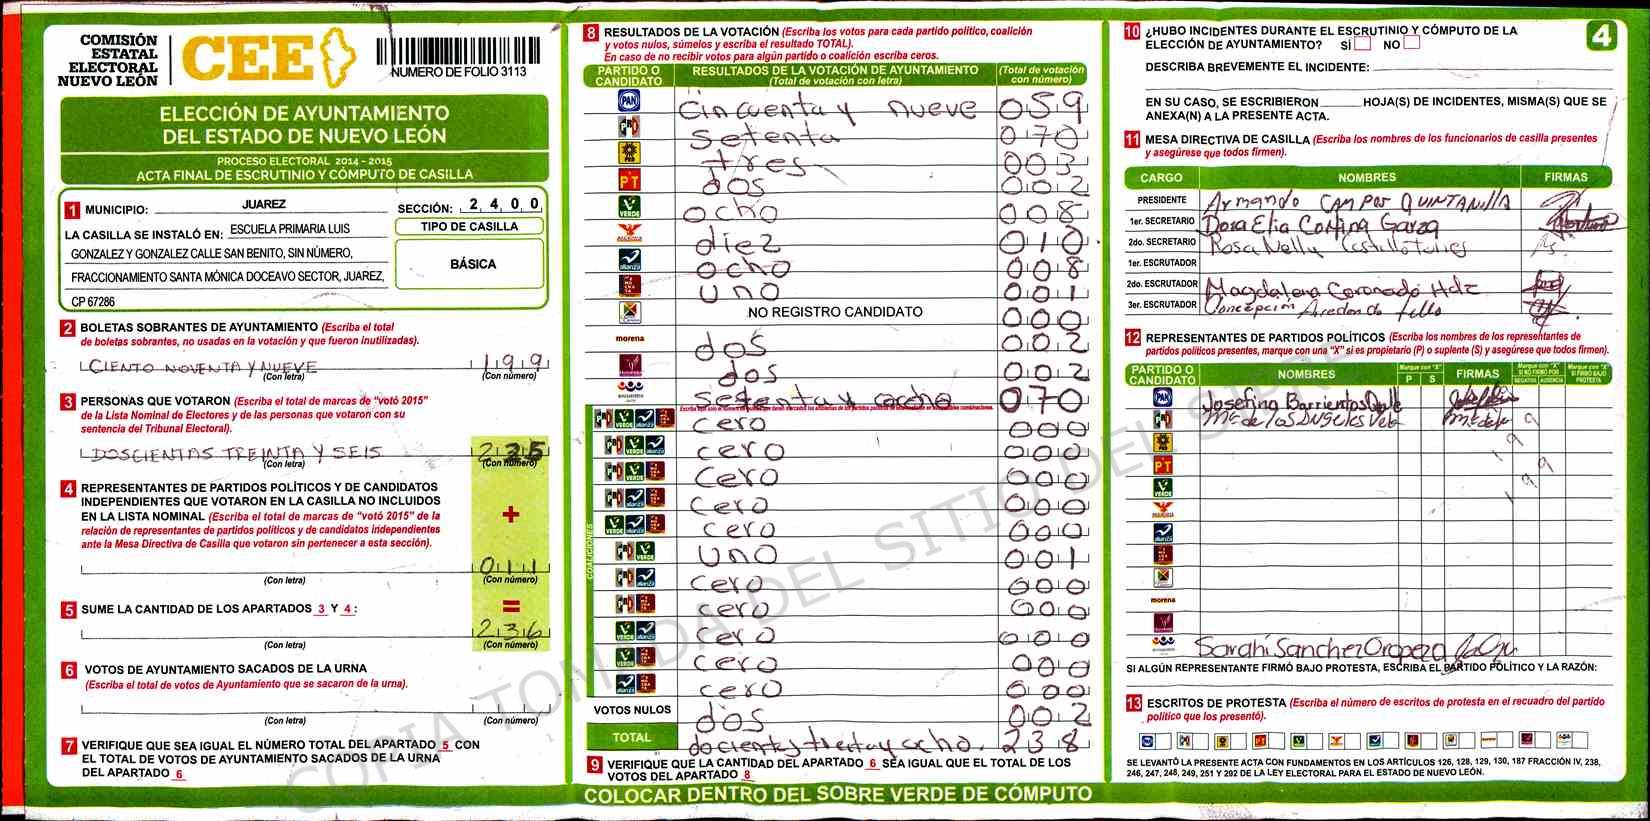 COMISIÓN
ESTATAL
ELECTORAL
NUEVO LEÓN
CEE
NUMERO DE FOLIO 3113
ELECCIÓN DE AYUNTAMIENTO
DEL ESTADO DE NUEVO LEÓN
PROCESO ELECTORAL 2014 - 2015
ACTA FINAL DE ESCRUTINIO Y CÓMPUTO DE CASILLA
1 MUNICIPIO: JUAREZ SECCIÓN: 2 4 0 0
LA CASILLA SE INSTALÓ EN: ESCUELA PRIMARIA LUIS
GONZALEZ Y GONZALEZ CALLE SAN BENITO, SIN NÚMERO,
FRACCIONAMIENTO SANTA MÓNICA DOCEAVO SECTOR, JUAREZ,
CP 67286
TIPO DE CASILLA
BÁSICA
2 BOLETAS SOBRANTES DE AYUNTAMIENTO (Escriba el total
de boletas sobrantes, no usadas en la votación y que fueron inutilizadas).
CIENTO NOVENTA Y NUEVE 1 9 9
(Con letra) (Con número)
3 PERSONAS QUE VOTARON (Escriba el total de marcas de "votó 2015"
de la Lista Nominal de Electores y de las personas que votaron con su
sentencia del Tribunal Electoral).
DOSCIENTAS TREINTA Y SEIS
(Con letra) (Con número)
4 REPRESENTANTES DE PARTIDOS POLÍTICOS Y DE CANDIDATOS
INDEPENDIENTES QUE VOTARON EN LA CASILLA NO INCLUIDOS
EN LA LISTA NOMINAL (Escriba el total de marcas de "votó 2015" de la
relación de representantes de partidos políticos y de candidatos independientes
ante la Mesa Directiva de Casilla que votaron sin pertenecer a esta sección).
+
0 1 1
(Con letra) (Con número)
5 SUME LA CANTIDAD DE LOS APARTADOS 3 Y 4:
=
2 3 6
(Con letra) (Con número)
6 VOTOS DE AYUNTAMIENTO SACADOS DE LA URNA
(Escriba el total de votos de Ayuntamiento que se sacaron de la urna).
(Con letra) (Con número)
7 VERIFIQUE QUE SEA IGUAL EL NÚMERO TOTAL DEL APARTADO 5 CON
EL TOTAL DE VOTOS DE AYUNTAMIENTO SACADOS DE LA URNA
DEL APARTADO 6
8 RESULTADOS DE LA VOTACIÓN (Escriba los votos para cada partido político, coalición
y votos nulos, súmelos y escriba el resultado TOTAL).
En caso de no recibir votos para algún partido o coalición escriba ceros.
PARTIDO O CANDIDATO RESULTADOS DE LA VOTACIÓN DE AYUNTAMIENTO (Total de votación con letra) (Total de votación con número)
PAN Cincuenta y nueve 0 5 9
PRI setenta 0 7 0
PRD tres 0 0 3
PT dos 0 0 2
VERDE ocho 0 0 8
diez 0 1 0
alianza ocho 0 0 8
uno 0 0 1
NO REGISTRO CANDIDATO 0 0 0
morena dos 0 0 2
dos 0 0 2
setenta y cocho 0 7 0
COALICIONES
cero 0 0 0
cero 0 0 0
cero 0 0 0
cero 0 0 0
cero 0 0 0
uno 0 0 1
cero 0 0 0
cero 0 0 0
cero 0 0 0
cero 0 0 0
cero 0 0 0
VOTOS NULOS dos 0 0 2
TOTAL docientos treita y ocho. 2 3 8
9 VERIFIQUE QUE LA CANTIDAD DEL APARTADO 6 SEA IGUAL QUE EL TOTAL DE LOS
VOTOS DEL APARTADO 8
COLOCAR DENTRO DEL SOBRE VERDE DE CÓMPUTO
4
10 ¿HUBO INCIDENTES DURANTE EL ESCRUTINIO Y CÓMPUTO DE LA
ELECCIÓN DE AYUNTAMIENTO? SÍ NO
DESCRIBA BREVEMENTE EL INCIDENTE:
EN SU CASO, SE ESCRIBIERON HOJA(S) DE INCIDENTES, MISMA(S) QUE SE
ANEXA(N) A LA PRESENTE ACTA.
11 MESA DIRECTIVA DE CASILLA (Escriba los nombres de los funcionarios de casilla presentes
y asegúrese que todos firmen).
CARGO NOMBRES FIRMAS
PRESIDENTE Armando CAMPOS QUINTANILLA
1er. SECRETARIO Dora Elia Cortina Garza
2do. SECRETARIO Rosa Nelly Castillo Torres
1er. ESCRUTADOR
2do. ESCRUTADOR Magdalena Coronado Hdz
3er. ESCRUTADOR Concepcion Arredondo Tello
12 REPRESENTANTES DE PARTIDOS POLÍTICOS (Escriba los nombres de los representantes de
partidos políticos presentes, marque con una "X" si es propietario (P) o suplente (S) y asegúrese que todos firmen).
PARTIDO O CANDIDATO NOMBRES Marque con "X" P S FIRMAS Marque con "X" SI NO FIRMÓ POR NEGATIVA AUSENCIA Marque con "X" SI FIRMÓ BAJO PROTESTA
PAN Josefina Barrientos
Ma de los Angeles Vela
PT
VERDE
morena
Sarahi Sanchez Oropeza
199
199
SI ALGÚN REPRESENTANTE FIRMÓ BAJO PROTESTA, ESCRIBA EL PARTIDO POLÍTICO Y LA RAZÓN:
13 ESCRITOS DE PROTESTA (Escriba el número de escritos de protesta en el recuadro del partido
político que los presentó).
SE LEVANTÓ LA PRESENTE ACTA CON FUNDAMENTOS EN LOS ARTÍCULOS 126, 128, 129, 130, 187 FRACCIÓN IV, 238,
246, 247, 248, 249, 251 Y 292 DE LA LEY ELECTORAL PARA EL ESTADO DE NUEVO LEÓN.
COPIA TOMADA DEL SITIO DEL SIPRE